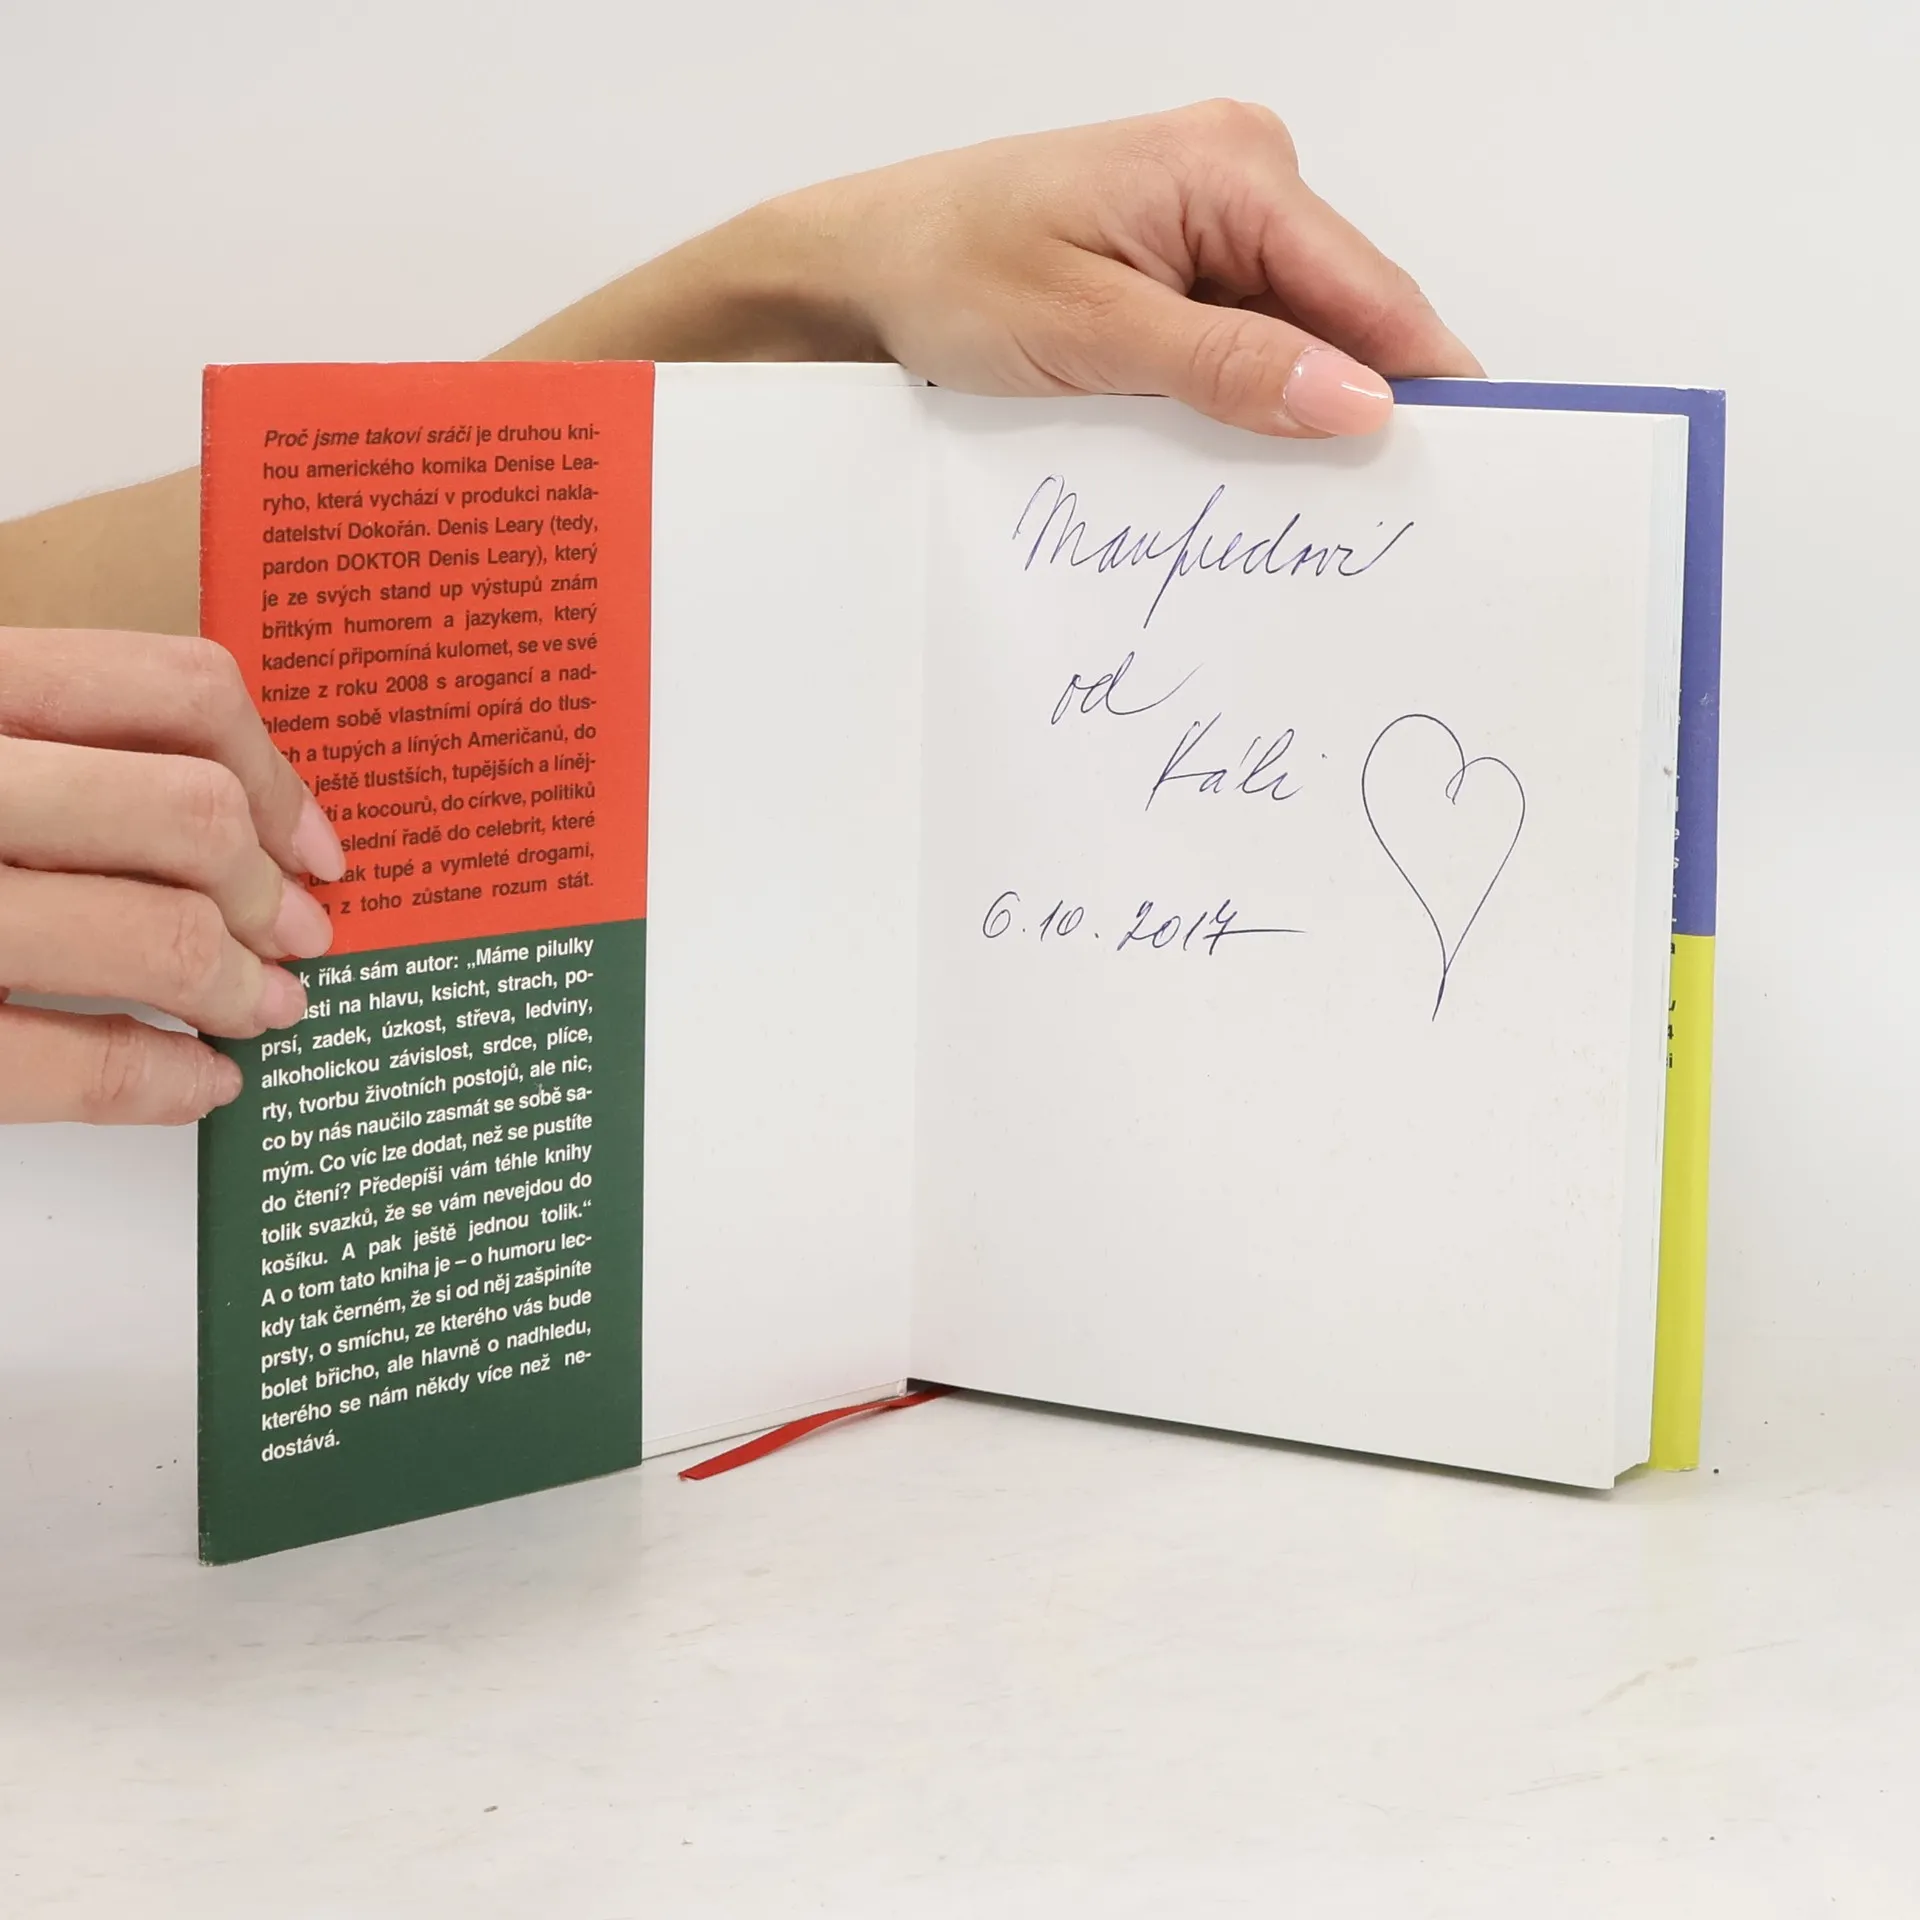 Proč jsme takoví sráčí je druhou kni-
hou amerického komika Denise Lea-
ryho, která vychází v produkci nakla-
datelství Dokořán. Denis Leary (tedy,
pardon DOKTOR Denis Leary), který
je ze svých stand up výstupů znám
břitkým humorem a jazykem, který
kadencí připomíná kulomet, se ve své
knize z roku 2008 s arogancí a nad-
hledem sobě vlastními opírá do tlus-
ch a tupých a líných Američanů, do
ještě tlustších, tupějších a líněj-
tí a kocourů, do církve, politiků
slední řadě do celebrit, které
tak tupé a vymleté drogami,
z toho zůstane rozum stát.
k říká sám autor: „Máme pilulky
sti na hlavu, ksicht, strach, po-
prsí, zadek, úzkost, střeva, ledviny,
alkoholickou závislost, srdce, plíce,
rty, tvorbu životních postojů, ale nic,
co by nás naučilo zasmát se sobě sa-
mým. Co víc lze dodat, než se pustíte
do čtení? Předepíši vám téhle knihy
tolik svazků, že se vám nevejdou do
košíku. A pak ještě jednou tolik.“
A o tom tato kniha je – o humoru lec-
kdy tak černém, že si od něj zašpiníte
prsty, o smíchu, ze kterého vás bude
bolet břicho, ale hlavně o nadhledu,
kterého se nám někdy více než ne-
dostává.
Manfredovi
od
Káti
6.10.2017